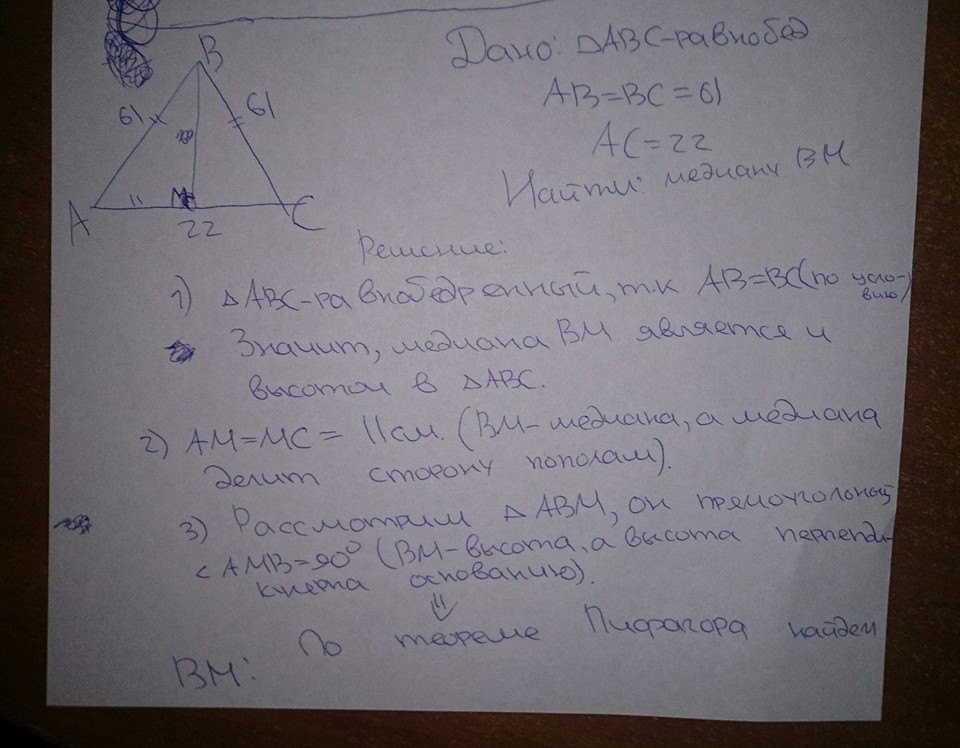 B
61
61
A
M
C
22
Дано: △ABC-равнобед
AB=BC=61
AC=22
Найти: медиану BM
Решение:
1) △ABC-равнобедренный, т.к AB=BC(по усло-
вию)
Значит, медиана BM является и
высотой в △ABC.
2) AM=MC= 11см. (BM-медиана, а медиана
делит сторону пополам).
3) Рассмотрим △ABM, он прямоугольный
<AMB=90° (BM-высота, а высота перпенди-
основанию).
⇓
По теореме Пифагора найдем
BM: